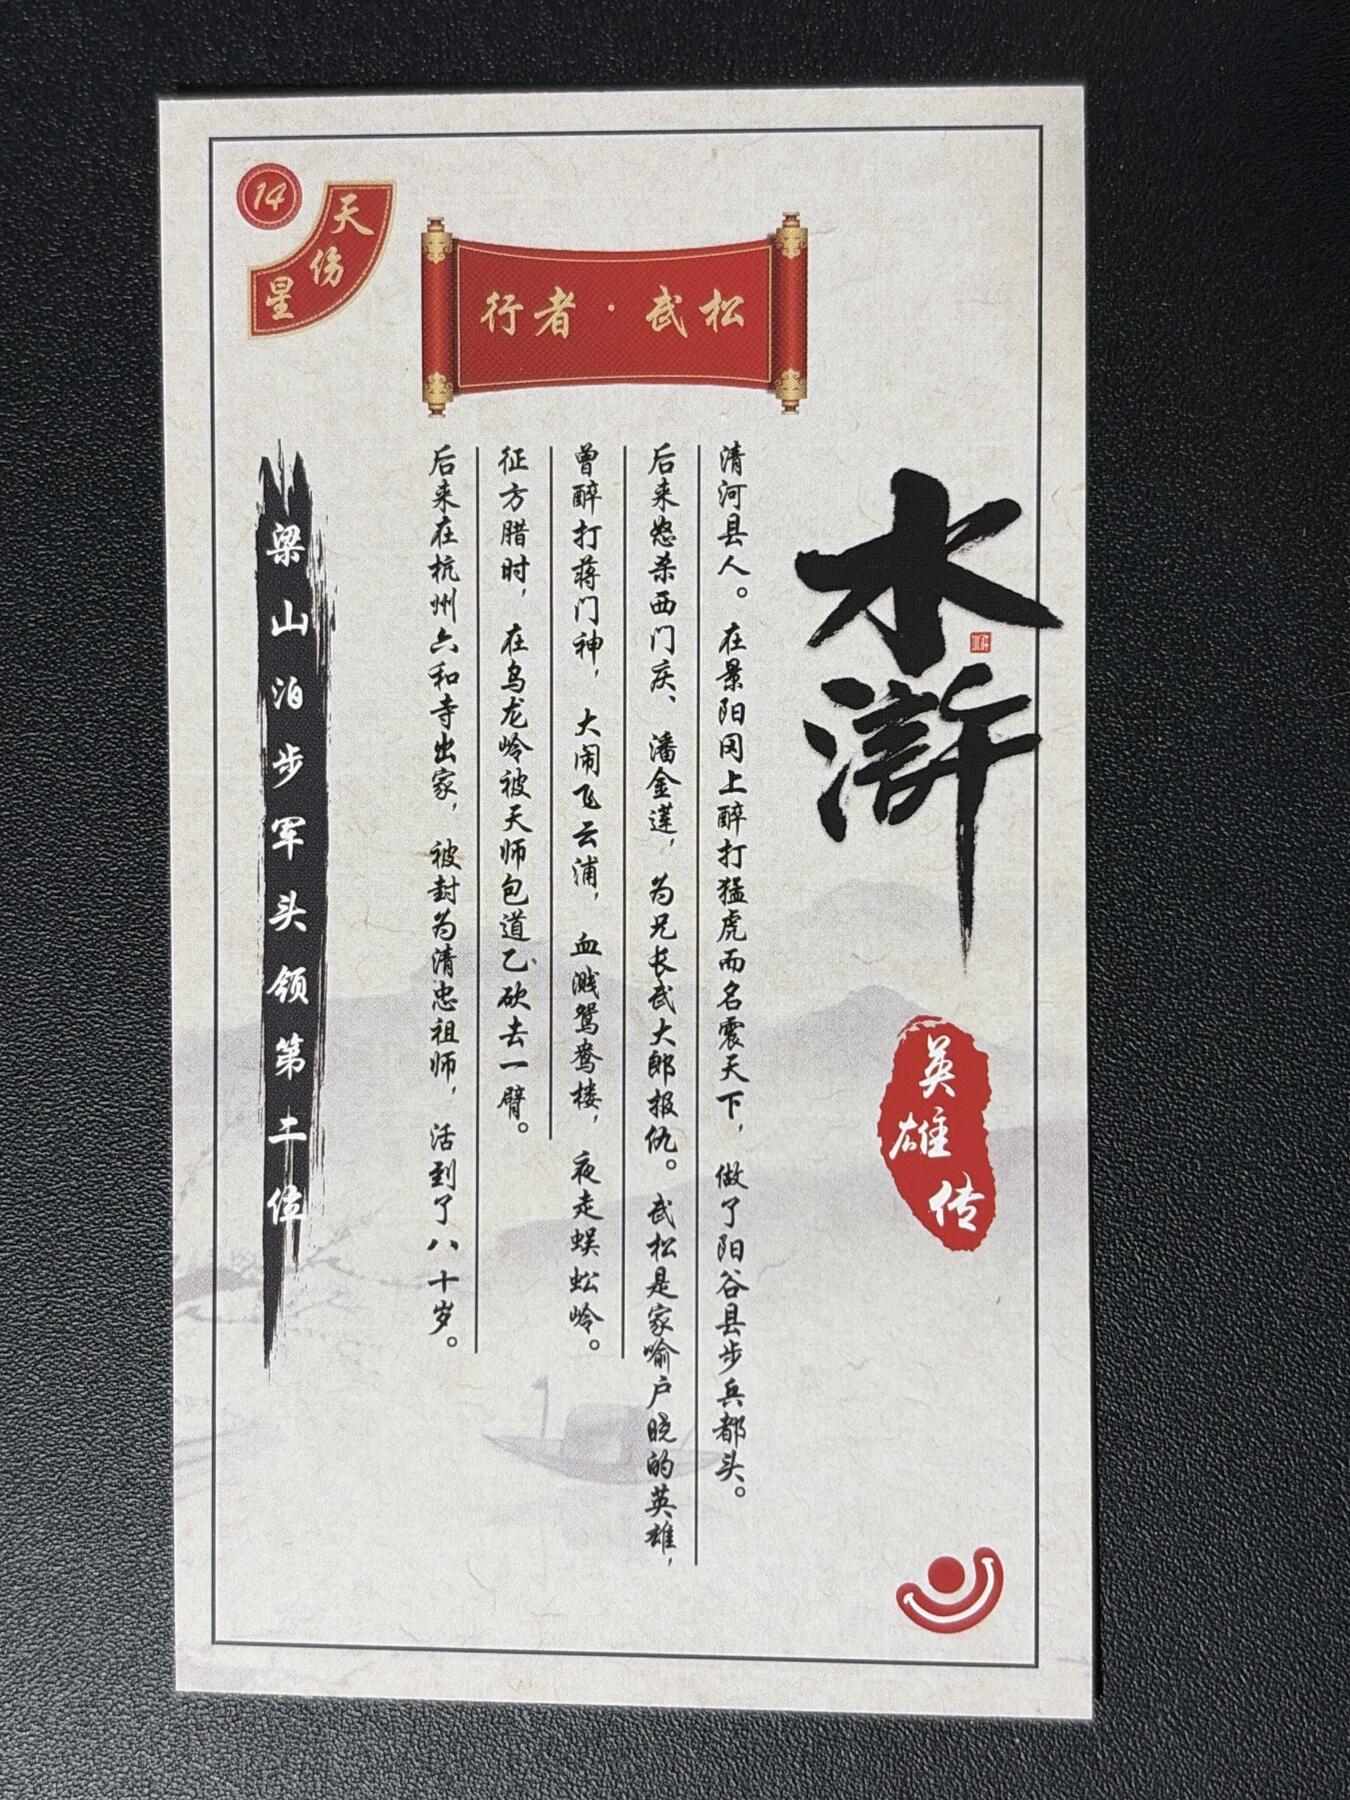 14
天伤星
行者·武松
水浒
英雄传
清河县人。在景阳冈上醉打猛虎而名震天下，做了阳谷县步兵都头。
后来怒杀西门庆、潘金莲，为兄长武大郎报仇。武松是家喻户晓的英雄，
曾醉打蒋门神，大闹飞云浦，血溅鸳鸯楼，夜走蜈蚣岭。
征方腊时，在乌龙岭被天师包道乙砍去一臂。
后来在杭州六和寺出家，被封为清忠祖师，活到了八十岁。
梁山泊步军头领第二位